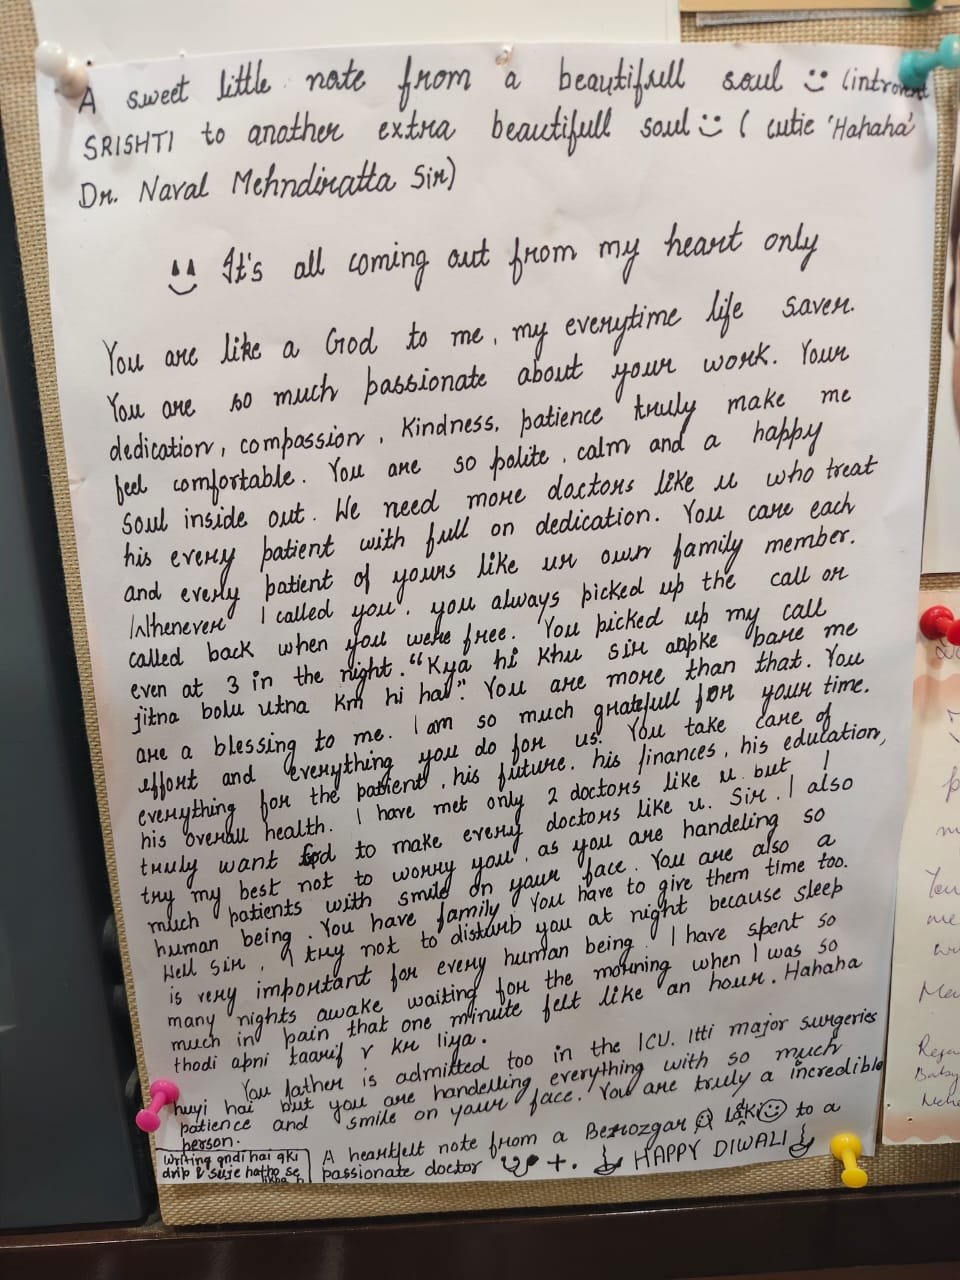 A sweet little note from a beautifull soul (introvert
SRISHTI to another extra beautifull soul ( cutie 'Hahaha'
Dr. Naval Mehndiratta Sir)
It's all coming out from my heart only
You are like a God to me, my everytime life saver.
You are so much passionate about your work. Your
dedication, compassion, Kindness, patience truly make me
feel comfortable. You are so polite, calm and a happy
soul inside out. We need more doctors like u who treat
his every patient with full on dedication. You care each
and every patient of yours like ur own family member.
Whenever I called you, you always picked up the call or
called back when you were free. You picked up my call
even at 3 in the night. "Kya hi Khu sir aapke bare me
jitna bolu utna km hi hai". You are more than that. You
are a blessing to me. I am so much gratefull for your time,
effort and everything you do for us. You take care of
everything for the patient, his future, his finances, his education,
his overall health. I have met only 2 doctors like u but I
truly want God to make every doctors like u. Sir, I also
try my best not to worry you, as you are handeling so
much patients with smile on your face. You are also a
human being. You have family You have to give them time too.
Well Sir, I try not to disturb you at night because sleep
is very important for every human being. I have spent so
many nights awake waiting for the morning when I was so
much in pain that one minute felt like an hour. Hahaha
thodi apni taarif v kr liya.
You father is admitted too in the ICU. Itti major surgeries
huyi hai but you are handelling everything with so much
patience and smile on your face. You are truly a incredible
person.
A heartfelt note from a Berozgar Ladki to a
passionate doctor +. HAPPY DIWALI
writing gndi hai qki
drip & suje hatho se